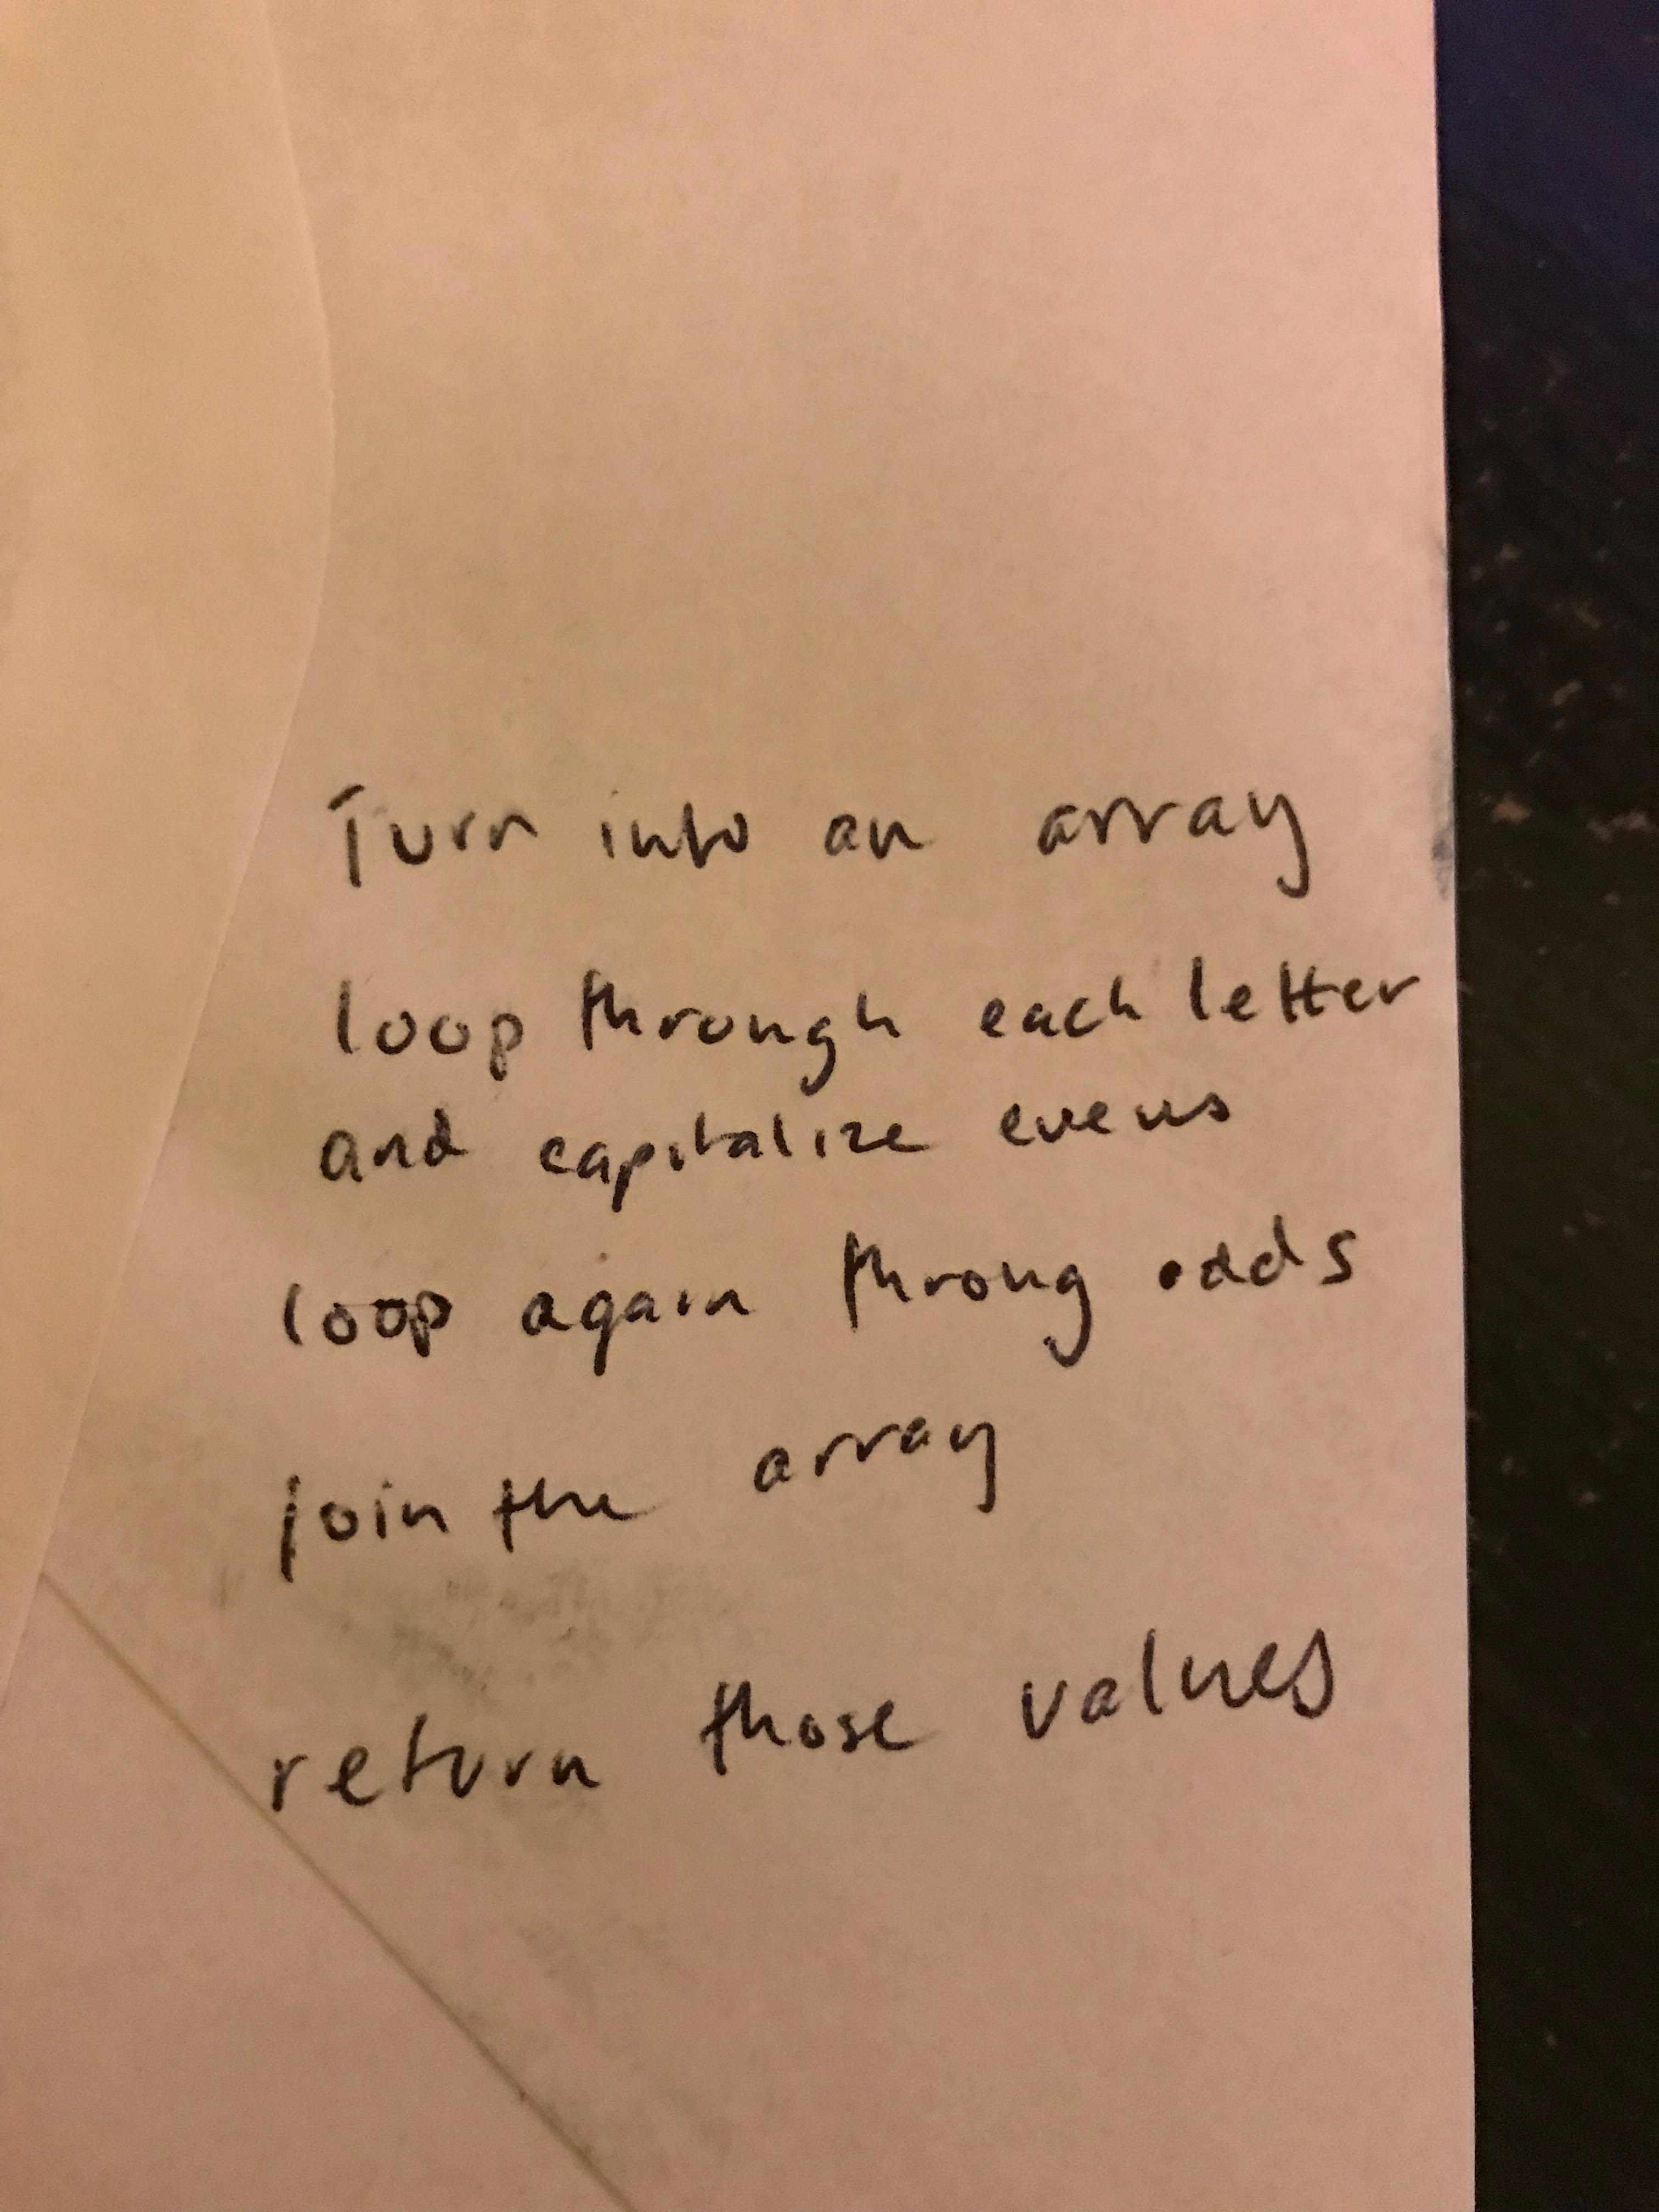 Turn into an array
loop through each letter
and capitalize evens
loop again throug odds
join the array
return those values